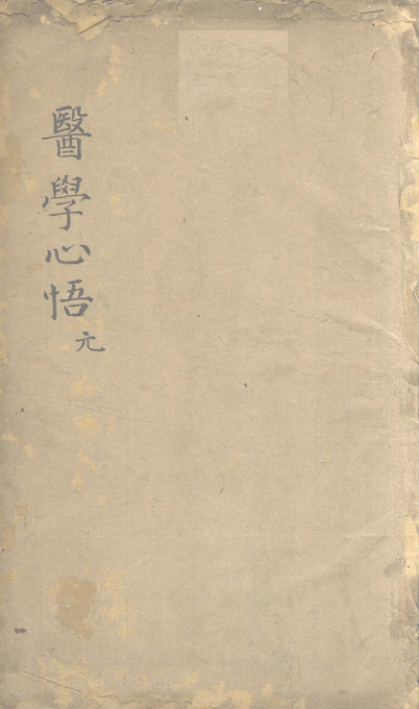 醫學心悟
元